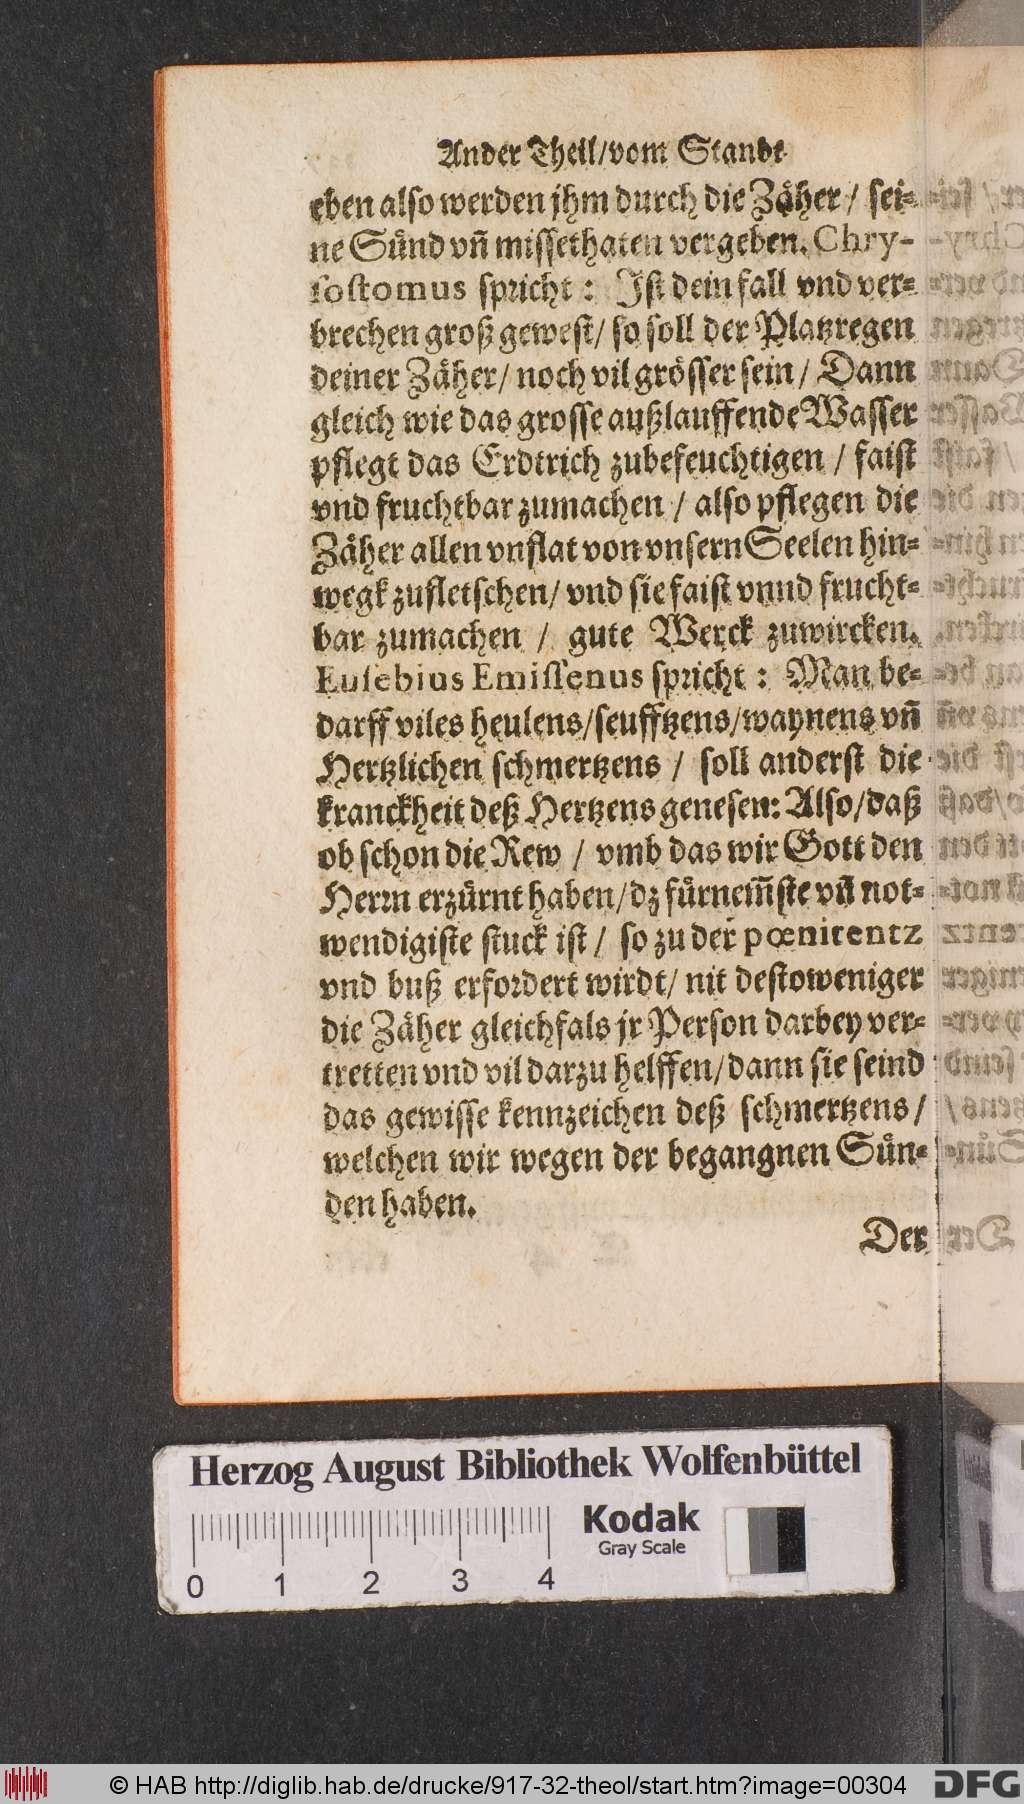 Ander Theil/vom Standt
eben also werden jhm durch die Zäher / sei-
ne Sünd vñ missethaten vergeben. Chry-
sostomus spricht : Ist dein fall vnd ver-
brechen groß gewest/ so soll der Platzregen
deiner Zäher/ noch vil grösser sein / Dann
gleich wie das grosse außlauffende Wasser
pflegt das Erdtrich zubefeuchtigen / faist
vnd fruchtbar zumachen / also pflegen die
Zäher allen vnflat von vnsern Seelen hin-
wegk zufletschen/ vnd sie faist vnnd frucht-
bar zumachen / gute Werck zuwircken.
Eusebius Emissenus spricht : Man be-
darff viles heulens/seufftzens/waynens vñ
Hertzlichen schmertzens / soll anderst die
kranckheit deß Hertzens genesen: Also/daß
ob schon die Rew / vmb das wir Gott den
Herrn erzürnt haben/dz fürnem̃ste vñ not-
wendigiste stuck ist / so zu der pœnitentz
vnd buß erfordert wirdt/ nit destoweniger
die Zäher gleichfals jr Person darbey ver-
tretten vnd vil darzu helffen/dann sie seind
das gewisse kennzeichen deß schmertzens /
welchen wir wegen der begangnen Sün-
den haben.
Der
Herzog August Bibliothek Wolfenbüttel
Kodak
Gray Scale
0 1 2 3 4
© HAB http://diglib.hab.de/drucke/917-32-theol/start.htm?image=00304
DFG